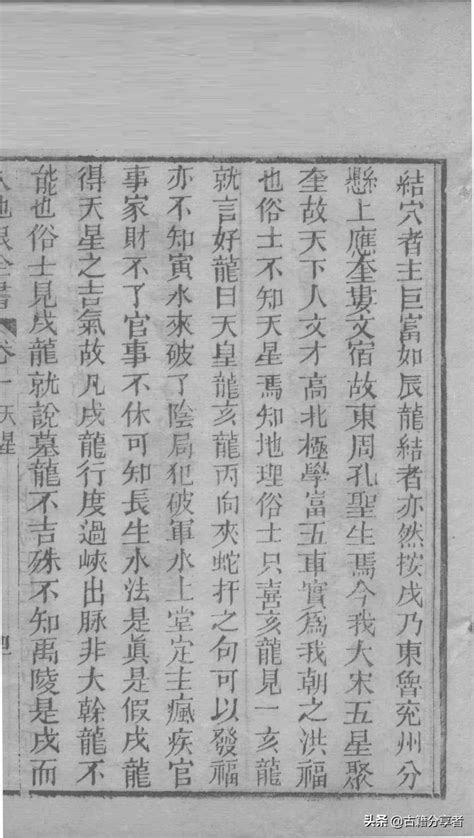 結穴者主巨富如辰龍結者亦然按戌乃東魯兖州分
懸上應奎婁文宿故東周孔聖生焉今我大宋五星聚
奎故天下人文才高北極學富五車實爲我朝之洪福
也俗士不知天星焉知地理俗士只喜亥龍見一亥龍
就言好龍曰天皇龍亥龍丙向夾蛇扦之句可以發福
亦不知寅水來破了陰局犯破軍水上堂定主瘋疾官
事家財不了官事不休可知長生水法是眞是假戌龍
得天星之吉氣故凡戌龍行度過峽出脉非大榦龍不
能也俗士見戌龍就說墓龍不吉殊不知禹陵是戌而
地眼全書 卷一 天星
头条 @古籍分享者